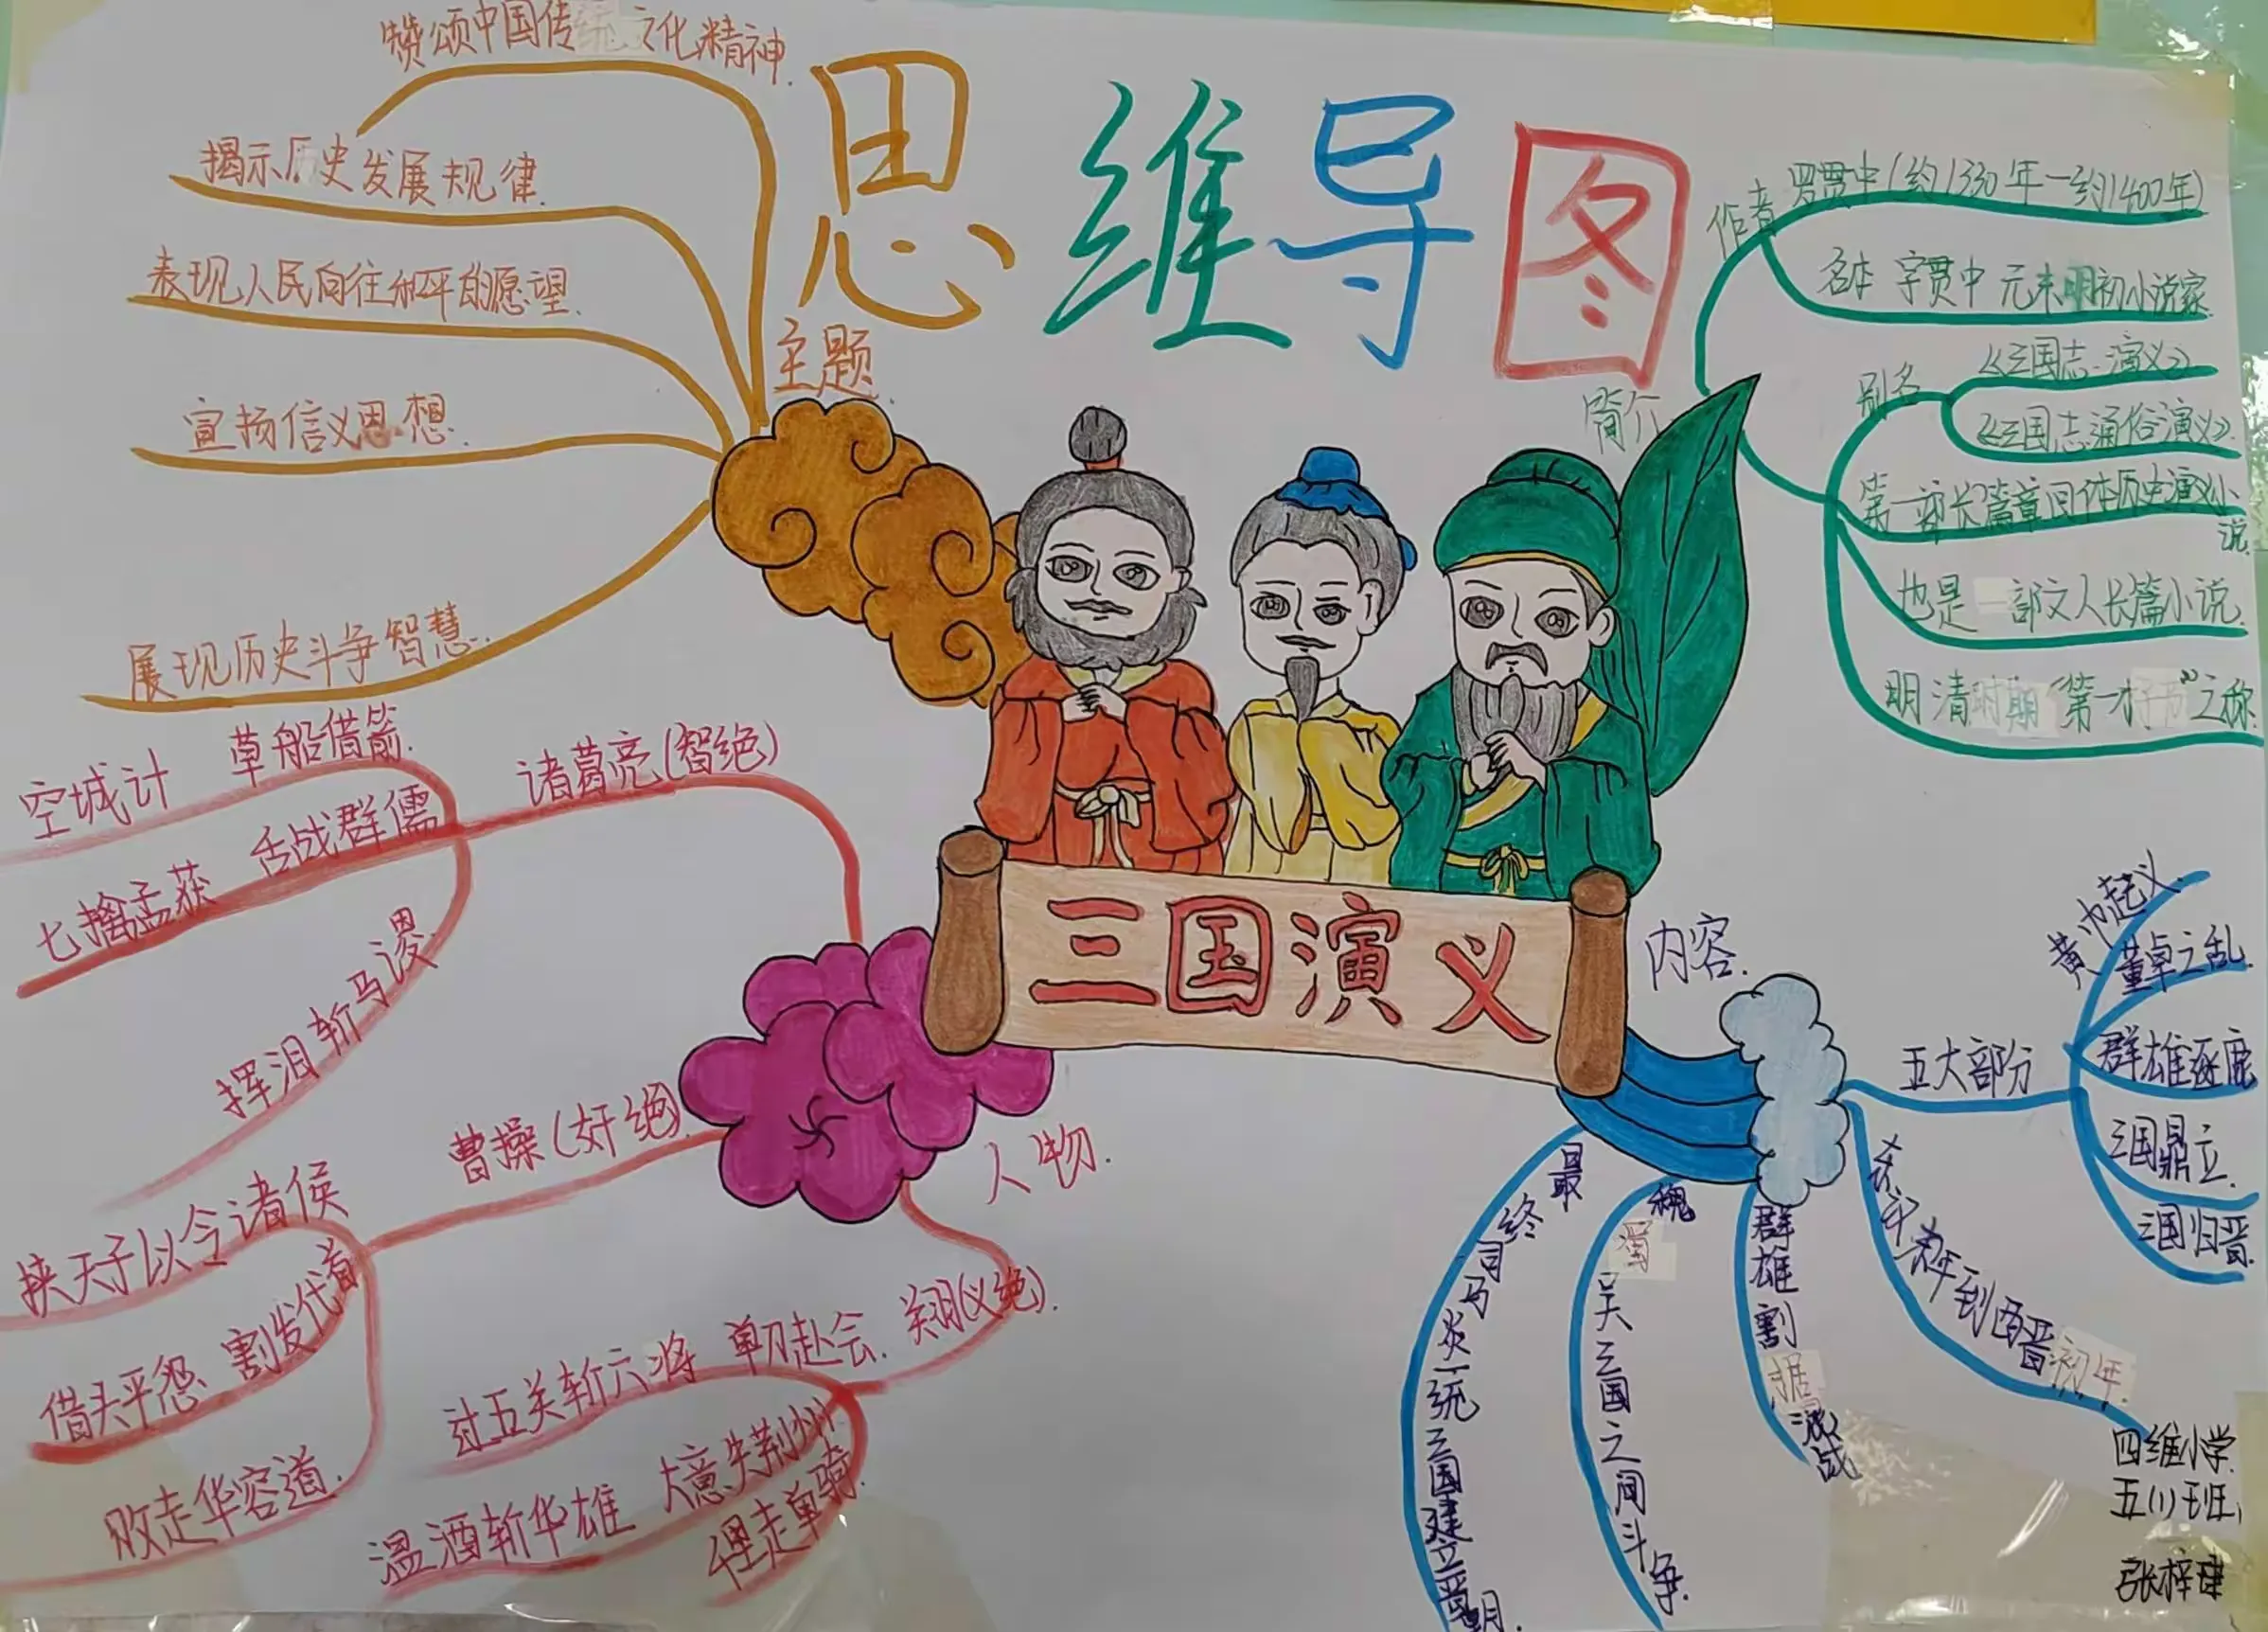 思维导图
三国演义
主题
赞颂中国传统文化精神.
揭示历史发展规律.
表现人民向往和平的愿望.
宣扬信义思想.
展现历史斗争智慧.
简介
作者
罗贯中(约1330年—约1400年)
名本 字贯中 元末明初小说家
别名
《三国志·演义》
《三国志通俗演义》
第一部长篇章回体历史演义小
说
也是一部文人长篇小说.
明清时期“第一才子书”之称
人物.
诸葛亮(智绝)
草船借箭
空城计
舌战群儒
七擒孟获
挥泪斩马谡
曹操(奸绝)
挟天子以令诸侯
割发代首
借头平怨
败走华容道.
关羽(义绝).
单刀赴会.
过五关斩六将
大意失荆州
温酒斩华雄
走单骑.
内容.
五大部分
黄巾起义.
董卓之乱.
群雄逐鹿
三国鼎立.
三国归晋.
东汉末年到西晋初年.
群雄割据混战
魏蜀吴三国之间斗争.
最终司马炎一统三国建立晋朝.
四维小学.
五(1)班,